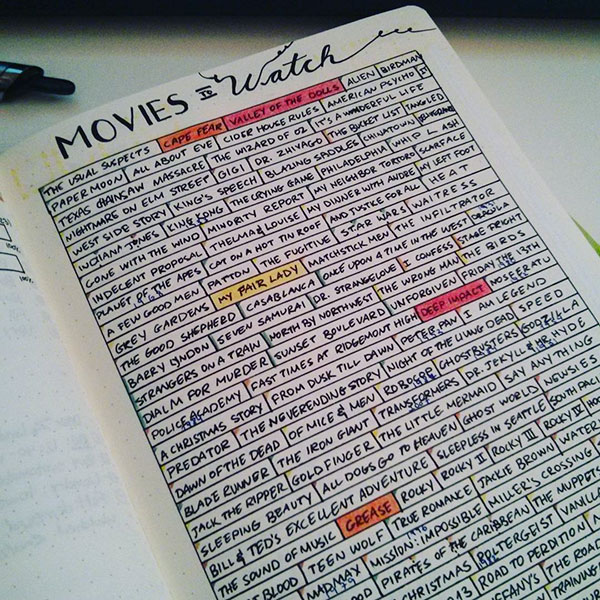 MOVIES TO Watch
THE USUAL SUSPECTS CAPE FEAR VALLEY OF THE DOLLS ALIEN BIRDMAN
PAPER MOON ALL ABOUT EVE CIDER HOUSE RULES AMERICAN PSYCHO
TEXAS CHAINSAW MASSACRE THE WIZARD OF OZ IT'S A WONDERFUL LIFE
NIGHTMARE ON ELM STREET GIGI DR. ZHIVAGO THE BUCKET LIST TANGLED
WEST SIDE STORY KING'S SPEECH BLAZING SADDLES CHINATOWN
INDIANA JONES KING KONG THE CRYING GAME PHILADELPHIA WHIPLASH
GONE WITH THE WIND MINORITY REPORT MY NEIGHBOR TORTORO SCARFACE
INDECENT PROPOSAL THELMA & LOUISE MY DINNER WITH ANDRE MY LEFT FOOT
PLANET OF THE APES CAT ON A HOT TIN ROOF AND JUSTICE FOR ALL HEAT
A FEW GOOD MEN PATTON THE FUGITIVE STAR WARS WAITRESS
GREY GARDENS MY FAIR LADY MATCHSTICK MEN THE INFILTRATOR
THE GOOD SHEPHERD CASABLANCA ONCE UPON A TIME IN THE WEST DRACULA
BARRY LYNDON SEVEN SAMURAI DR. STRANGELOVE I CONFESS STAGE FRIGHT
STRANGERS ON A TRAIN NORTH BY NORTHWEST THE WRONG MAN THE BIRDS
DIAL M FOR MURDER SUNSET BOULEVARD UNFORGIVEN FRIDAY THE 13TH
POLICE ACADEMY FAST TIMES AT RIDGEMONT HIGH DEEP IMPACT NOSFERATU
A CHRISTMAS STORY FROM DUSK TILL DAWN PETER PAN I AM LEGEND
PREDATOR THE NEVERENDING STORY NIGHT OF THE LIVING DEAD SPEED
DAWN OF THE DEAD OF MICE & MEN ROBOCOP GHOSTBUSTERS GODZILLA
BLADE RUNNER THE IRON GIANT TRANSFORMERS DR. JEKYLL & MR. HYDE
JACK THE RIPPER GOLDFINGER THE LITTLE MERMAID SAY ANYTHING
SLEEPING BEAUTY ALL DOGS GO TO HEAVEN GHOST WORLD NEWSIES
BILL & TED'S EXCELLENT ADVENTURE SLEEPLESS IN SEATTLE SOUTH PACI
THE SOUND OF MUSIC GREASE ROCKY ROCKY II ROCKY III ROCKY IV
BLOOD TEEN WOLF TRUE ROMANCE JACKIE BROWN WATER
MAD MAX MISSION: IMPOSSIBLE MILLER'S CROSSING
PIRATES OF THE CARIBBEAN THE MUPPETS
CHRISTMAS POLTERGEIST VANILLA
13 ROAD TO PERDITION
THE ROAD
TRAINING